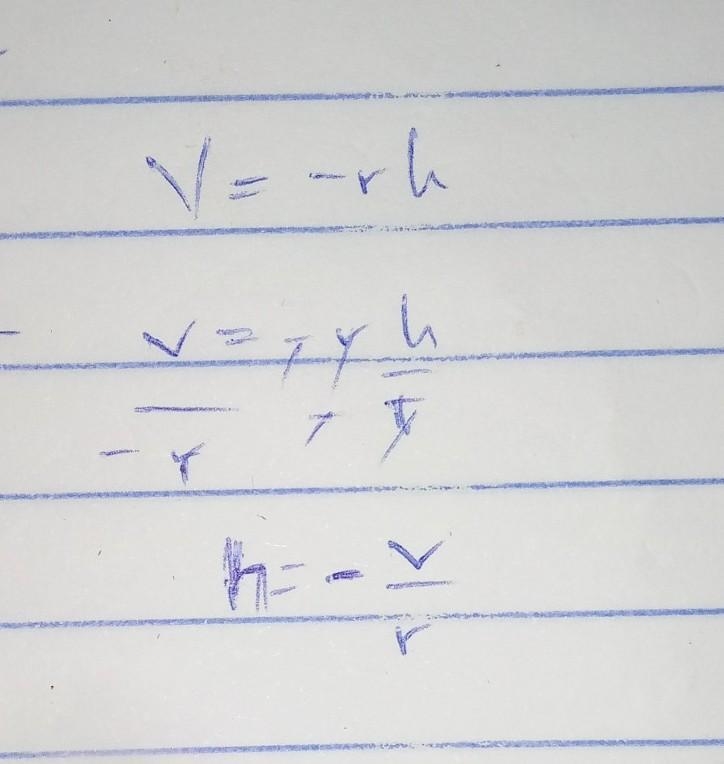 V = -rh
v = -r h
- r - r
h = - v
r